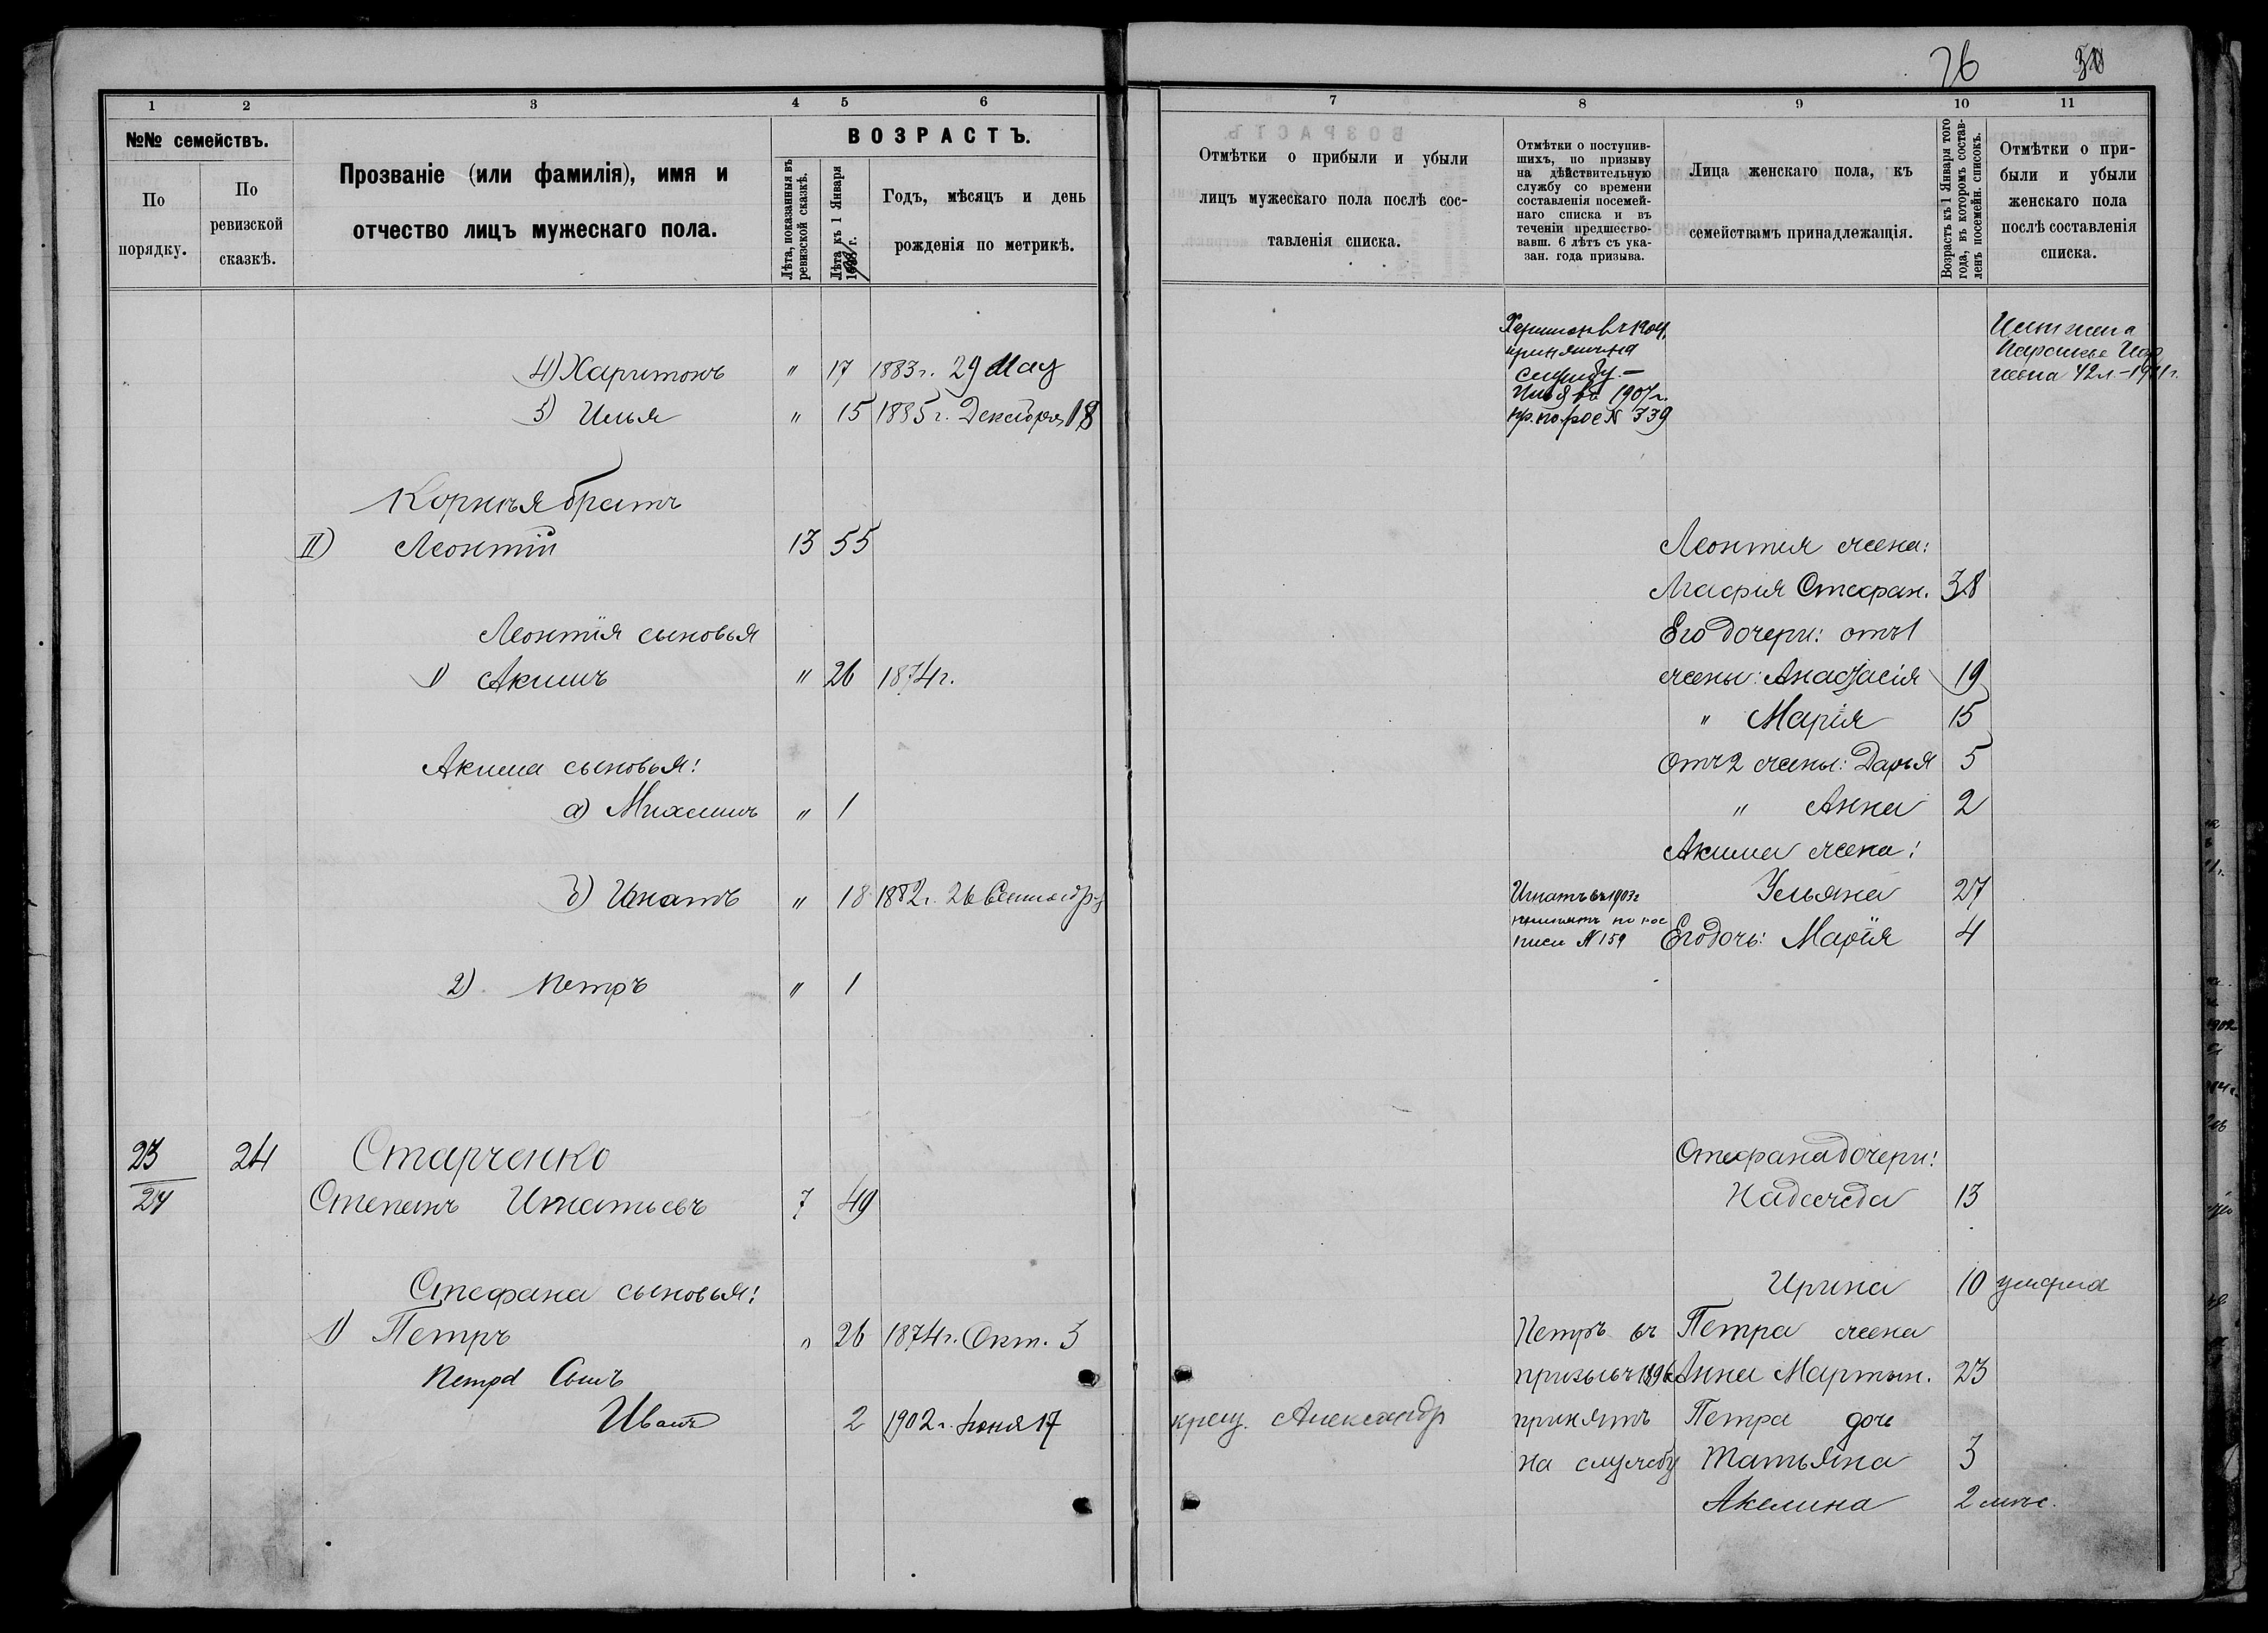 26
1 2 3 4 5 6
№№ семействъ.
По порядку.
По ревизской сказкѣ.
Прозваніе (или фамилія), имя и
отчество лицъ мужескаго пола.
ВОЗРАСТЪ.
Лѣта, показанныя въ ревизской сказкѣ.
Лѣта къ 1 Января г.
Годъ, мѣсяцъ и день
рожденія по метрикѣ.
4) Харитонъ " 17 1883 г. 29 Мая
5) Илья " 15 1885 г. Декабря 18
Корнѣя братъ
II) Леонтій 13 55
Леонтія сыновья
1) Акимъ " 26 1874 г.
Акима сыновья:
а) Михаилъ " 1
б) Игнатъ " 18 1882 г. 26 Сентября
2) Петръ " 1
23 24 Старченко
24 Степанъ Игнатьевъ 7 49
Стефана сыновья:
1) Петръ " 26 1874 г. Окт. 3
Петра Сынъ
Иванъ 2 1902 г. Іюня 17
7 8 9 10 11
Отмѣтки о прибыли и убыли
лицъ мужескаго пола послѣ сос-
тавленія списка.
Отмѣтки о поступив-
шихъ, по призыву
на дѣйствительную
службу со времени
составленія посемей-
наго списка и въ
теченіи предшество-
вавш. 6 лѣтъ съ ука-
зан. года призыва.
Лица женскаго пола, къ
семействамъ принадлежащія.
Возрастъ къ 1 Января того
года, въ которомъ состав-
ленъ посемейн. списокъ.
Отмѣтки о при-
были и убыли
женскаго пола
послѣ составленія
списка.
Харитонъ въ 1904
принятъ на
службу.-
Илья въ 1907 г.
пр. по рос № 339
жена
42 л. - 1911 г.
Леонтія жена:
Агафія Стефан. 38
Его дочери: отъ 1
жены: Анастасія 19
" Марія 15
Отъ 2 жены: Дарья 5
" Анна 2
Акима жена:
Игнатъ въ 1903 г Ульяна 27
принятъ по рос
писи № 159 Его дочь: Марія 4
Стефана дочери:
Надежда 13
Ирина 10 умерла
Петръ въ Петра жена
призывъ 1896 Анна Мартын. 23
крещ. Александр принятъ Петра дочь
на службу Татьяна 3
Акелина 2 мѣс.